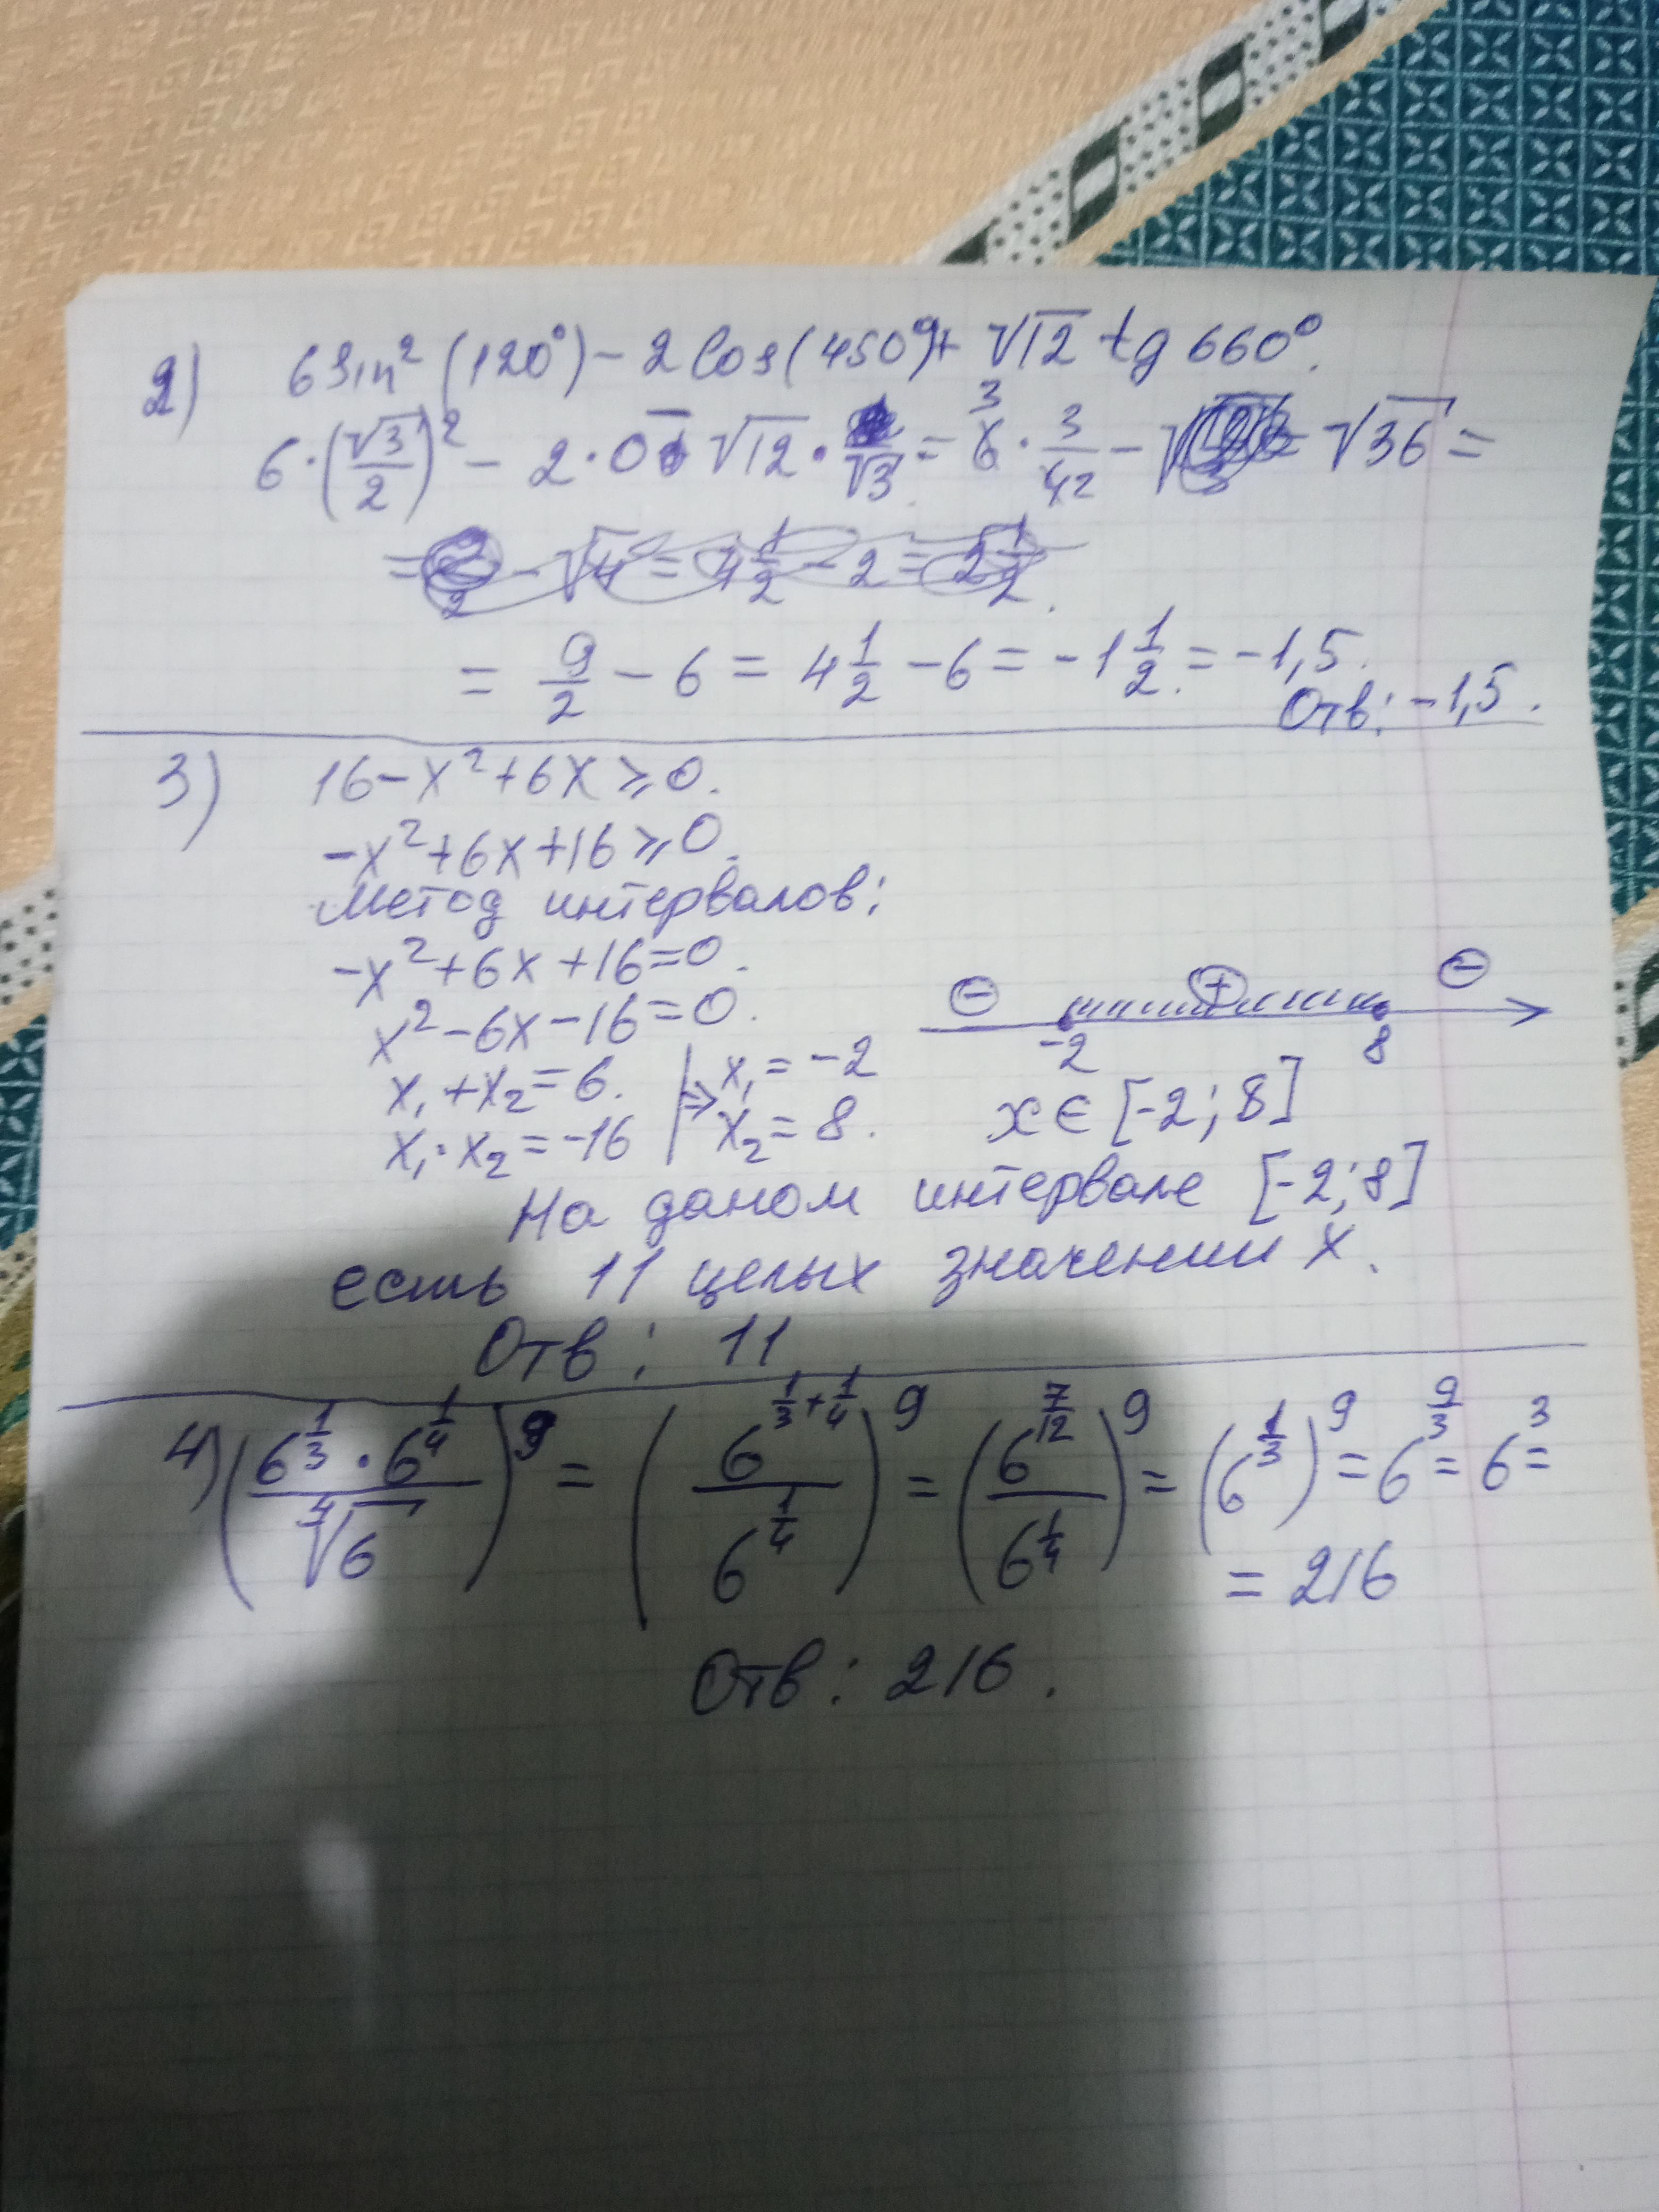 2) 6 Sin² (120°) - 2 Cos (450°) + √12 tg 660°.
6·(√3/2)² - 2·0 - √12 · √3 = 6 3 · 3/4 2 - √36 =
- √4 = 4 1/2 - 2 = 2 1/2.
= 9/2 - 6 = 4 1/2 - 6 = -1 1/2. = -1,5.
Отв: -1,5.
3) 16-x²+6x ⩾ 0.
-x²+6x+16 ⩾ 0.
Метод интервалов:
-x²+6x+16=0.
x²-6x-16=0.
⊖ ⊕ ⊖
-2 8
x₁+x₂=6. | ⇒ x₁=-2
x₁·x₂=-16 | x₂=8. x ∈ [-2; 8]
На даном интервале [-2; 8]
есть 11 целых значении x.
Отв: 11
4) (6^(1/3) · 6^(1/4) / ⁴√6)⁹ = (6^(1/3+1/4) / 6^(1/4))⁹ = (6^(7/12) / 6^(1/4))⁹ = (6^(1/3))⁹ = 6^(9/3) = 6³ =
= 216
Отв: 216.